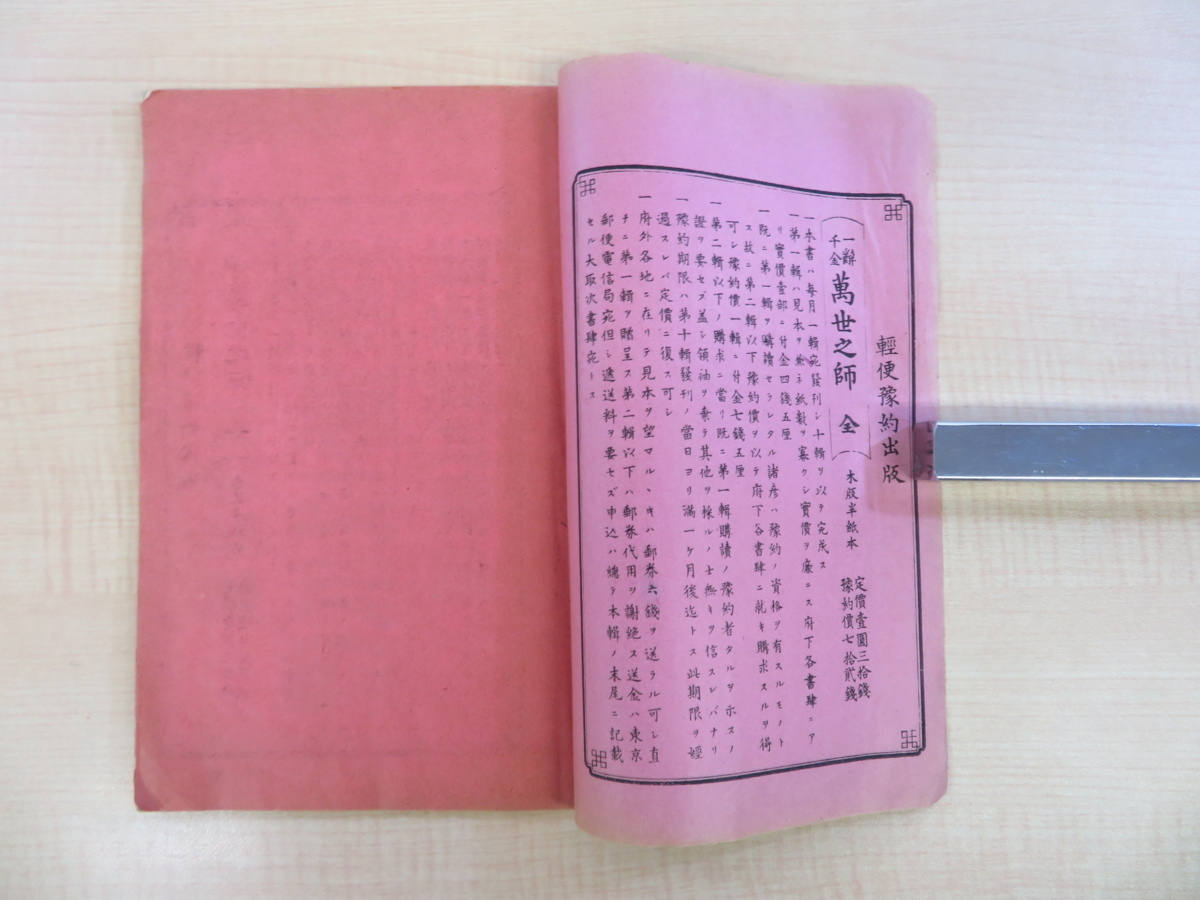 輕便豫約出版
一辭千金 萬世之師 全 木版半紙本 定價壹圓三拾錢 豫約價七拾貳錢
一本書ハ每月一輯宛發刊シ十輯ヲ以テ完成ス
一第一輯ハ見本ヲ兼子紙數ヲ寡クシ實價ヲ廉ニス府下各書肆ニア
リ實價壹部ニ付金四錢五厘
一既ニ第一輯ヲ購讀セラレタル諸彦ハ豫約ノ資格ヲ有スルモノト
ス故ニ第二輯以下豫約價ヲ以テ府下各書肆ニ就キ購求スルヲ得
可シ豫約價一輯ニ付金七錢五厘
一第二輯以下ノ購求ニ當リ既ニ第一輯購讀ノ豫約者タルヲ示スノ
證ヲ要セズ蓋シ領袖ヲ棄テ其他ヲ採ルノ士無キヲ信スレバナリ
一豫約期限ハ第十輯發刊ノ當日ヨリ滿一ケ月後迄トス此期限ヲ經
過スレバ定價ニ復ス可シ
一府外各地ニ在リテ見本ヲ望マルヽキハ郵券六錢ヲ送ラル可シ直
チニ第一輯ヲ贈呈ス第二輯以下ハ郵券代用ヲ謝絶ス送金ハ東京
郵便電信局宛但シ遞送料ヲ要セズ申込ハ總テ本輯ノ末尾ニ記載
セル大取次書肆宛トス